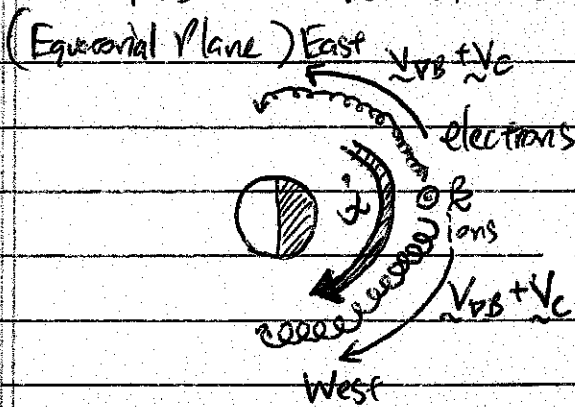 (Equatorial Plane) East
V∇B + Vc
electrons
B
ions
V∇B + Vc
West